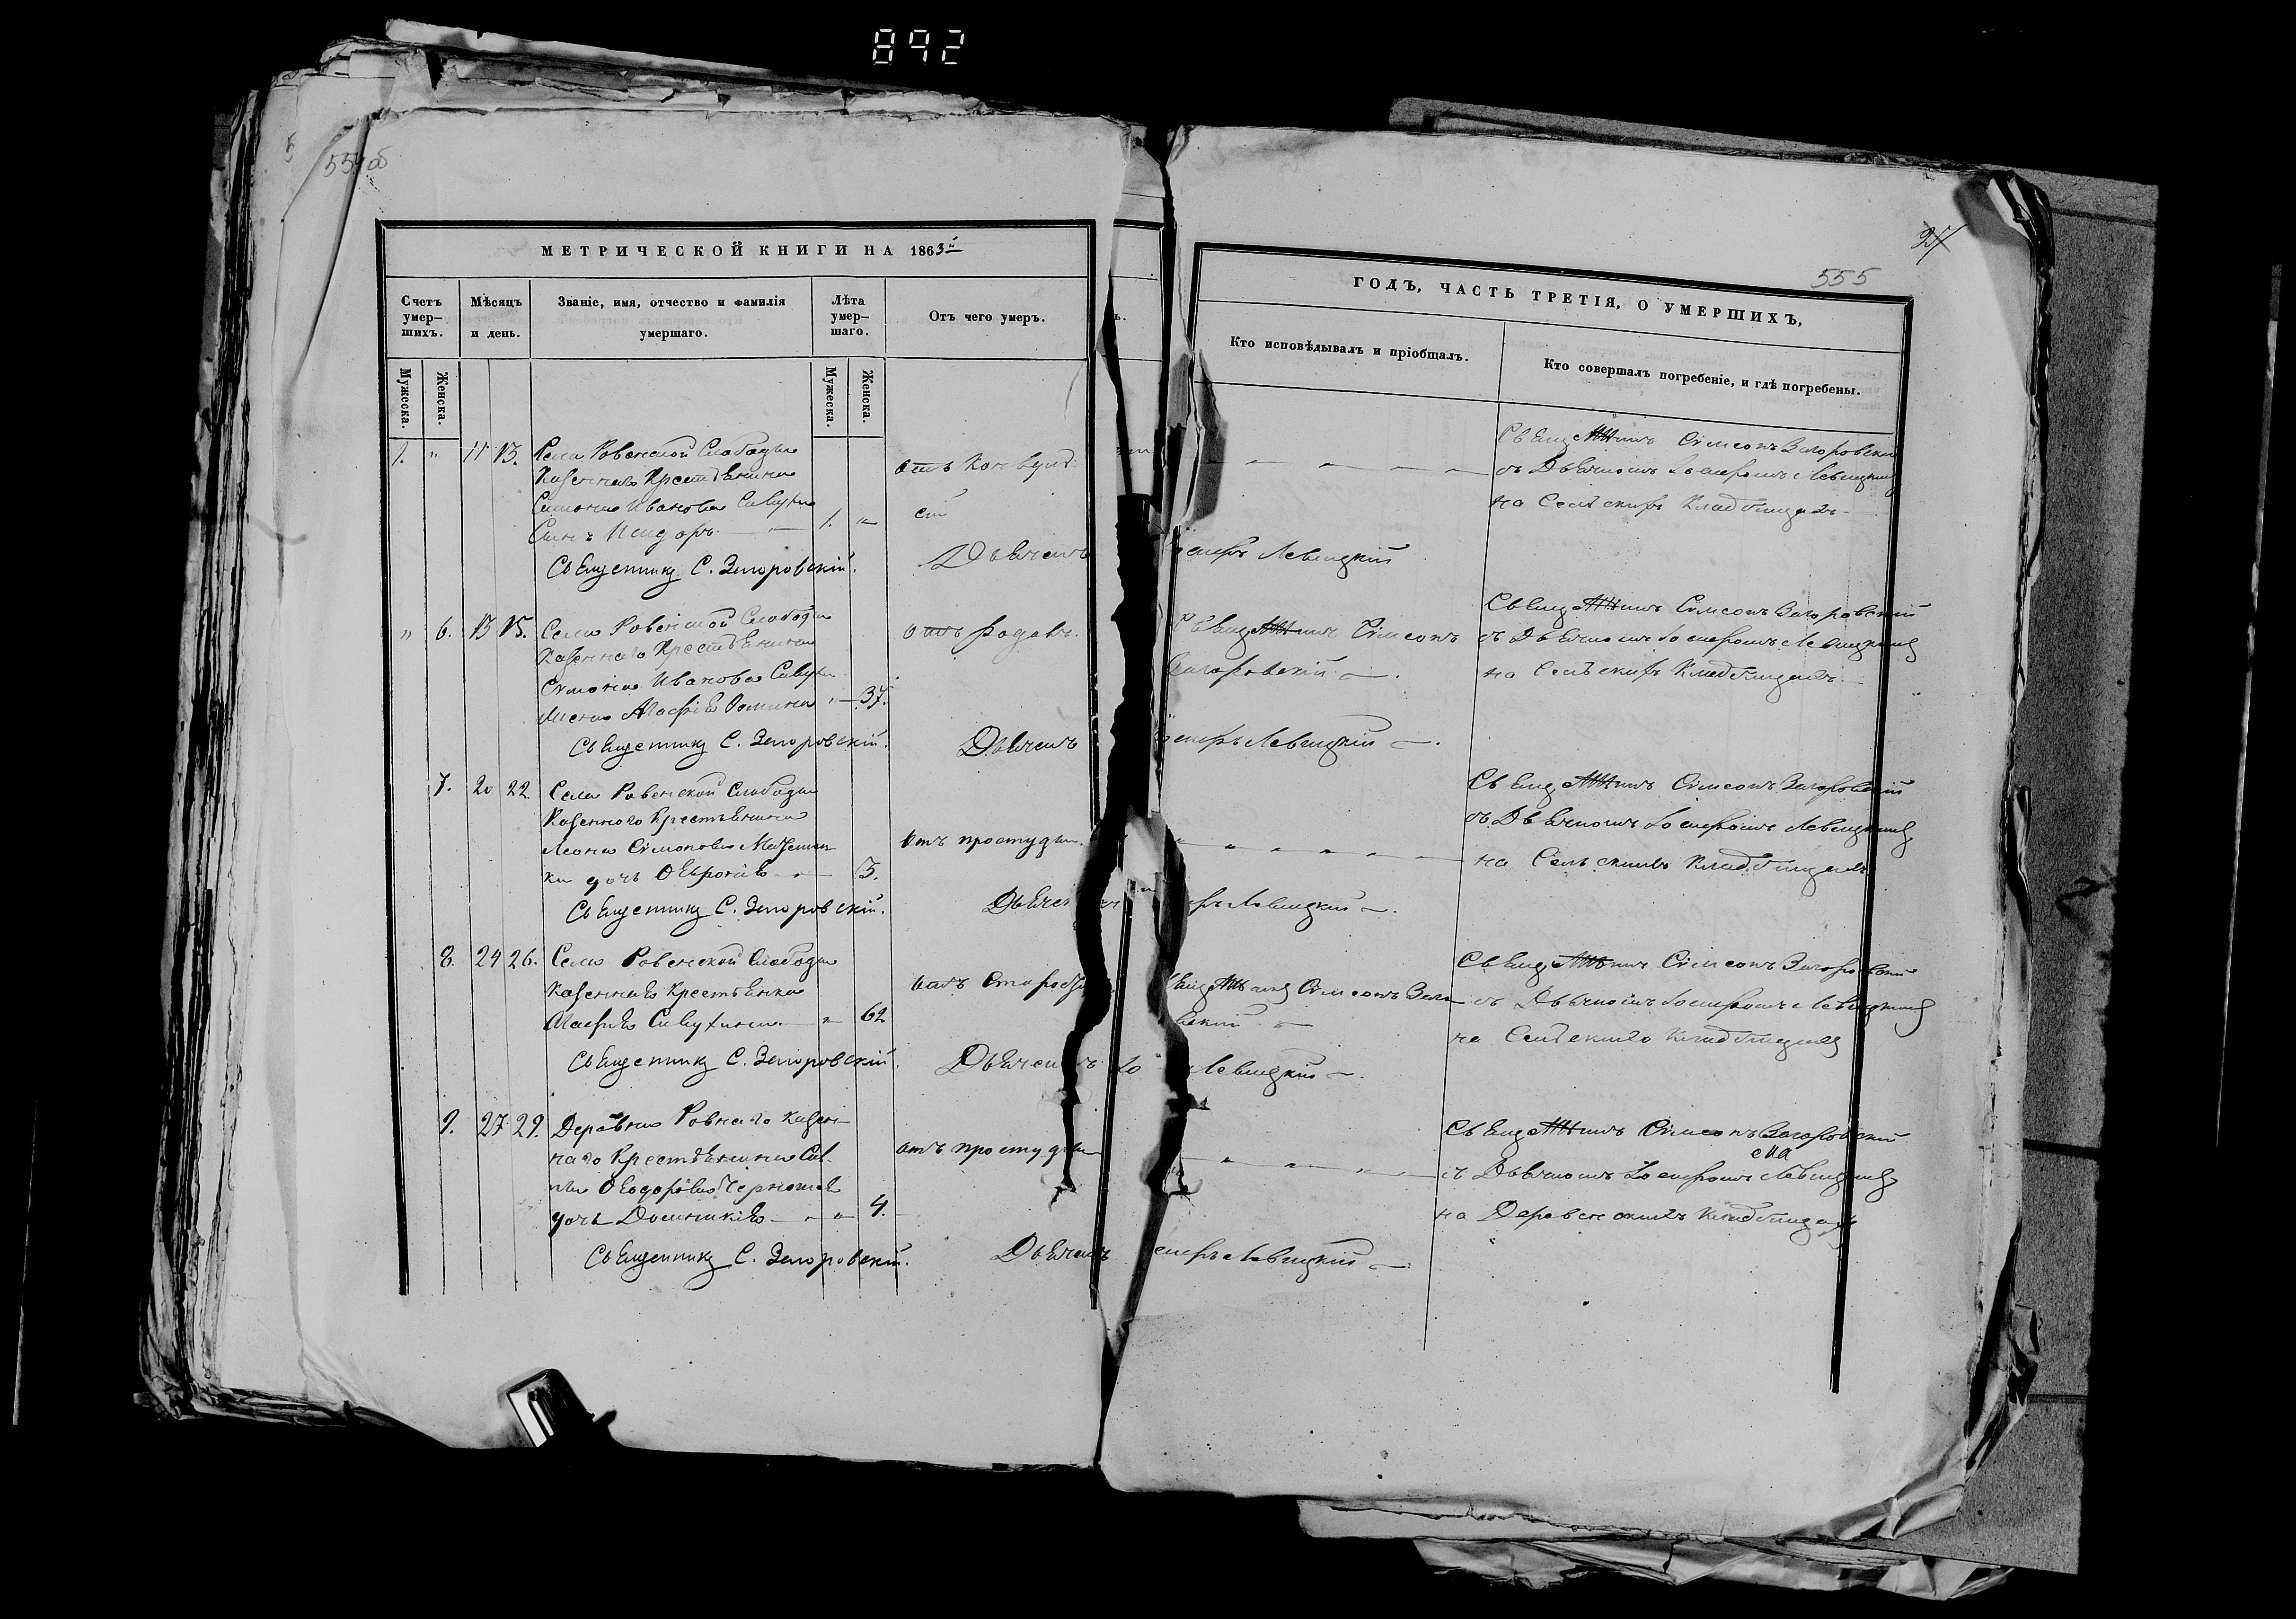 892
554об
МЕТРИЧЕСКОЙ КНИГИ НА 1863й
Счетъ умер-шихъ.
Мѣсяцъ и день.
Званіе, имя, отчество и фамилія умершаго.
Лѣта умер-шаго.
Отъ чего умеръ.
Мужеска.
Женска.
Мужеска.
Женска.
1. " 11 13. Села Ровенской Слободы
Казеннаго Крестьянина
Симона Иванова Сивухи
Сынъ Исидоръ 1. "
отъ Конвульс
Священникъ С. Загоровскій.
Дьячекъ
" 6. 13 15. Села Ровенской Слободы
Казеннаго Крестьянина
Симона Иванова Сивухи
Жена Марія 37.
отъ родовъ.
Священникъ С. Загоровскій.
Дьячекъ
7. 20 22 Села Ровенской Слободы
Казеннаго Крестьянина
Леона Симонова
ки дочь 3.
отъ простуды.
Священникъ С. Загоровскій.
8. 24 26. Села Ровенской Слободы
Казенная Крестьянка
Марія Сивухина " 62
отъ старости
Священникъ С. Загоровскій.
Дьячекъ
9. 27 29. Деревни Ровнаго Казен-
наго Крестьянина
Ѳеодорова
дочь Домникія " 4.
отъ простуды
Священникъ С. Загоровскій.
Дьячекъ
27
555
ГОДЪ, ЧАСТЬ ТРЕТІЯ, О УМЕРШИХЪ,
Кто исповѣдывалъ и пріобщалъ.
Кто совершалъ погребеніе, и гдѣ погребены.
Симеонъ Загоровскій
съ Дьячкомъ Іосифомъ Левицкимъ
на Сельскомъ Кладбищѣ
Левицкій
Симеонъ
Загоровскій
Симеонъ Загоровскій
съ Дьячкомъ Іосифомъ Левицкимъ
на Сельскомъ Кладбищѣ
Левицкій
Симеонъ Загоровскій
съ Дьячкомъ Іосифомъ Левицкимъ
на Сельскомъ Кладбищѣ
Левицкій
Симеонъ
Симеонъ Загоровскій
съ Дьячкомъ Іосифомъ Левицкимъ
на Сельскомъ Кладбищѣ
Левицкій
Симеонъ Загоровскій
съ Дьячкомъ Іосифомъ Левицкимъ
на Деревенскомъ Кладбищѣ
Левицкій